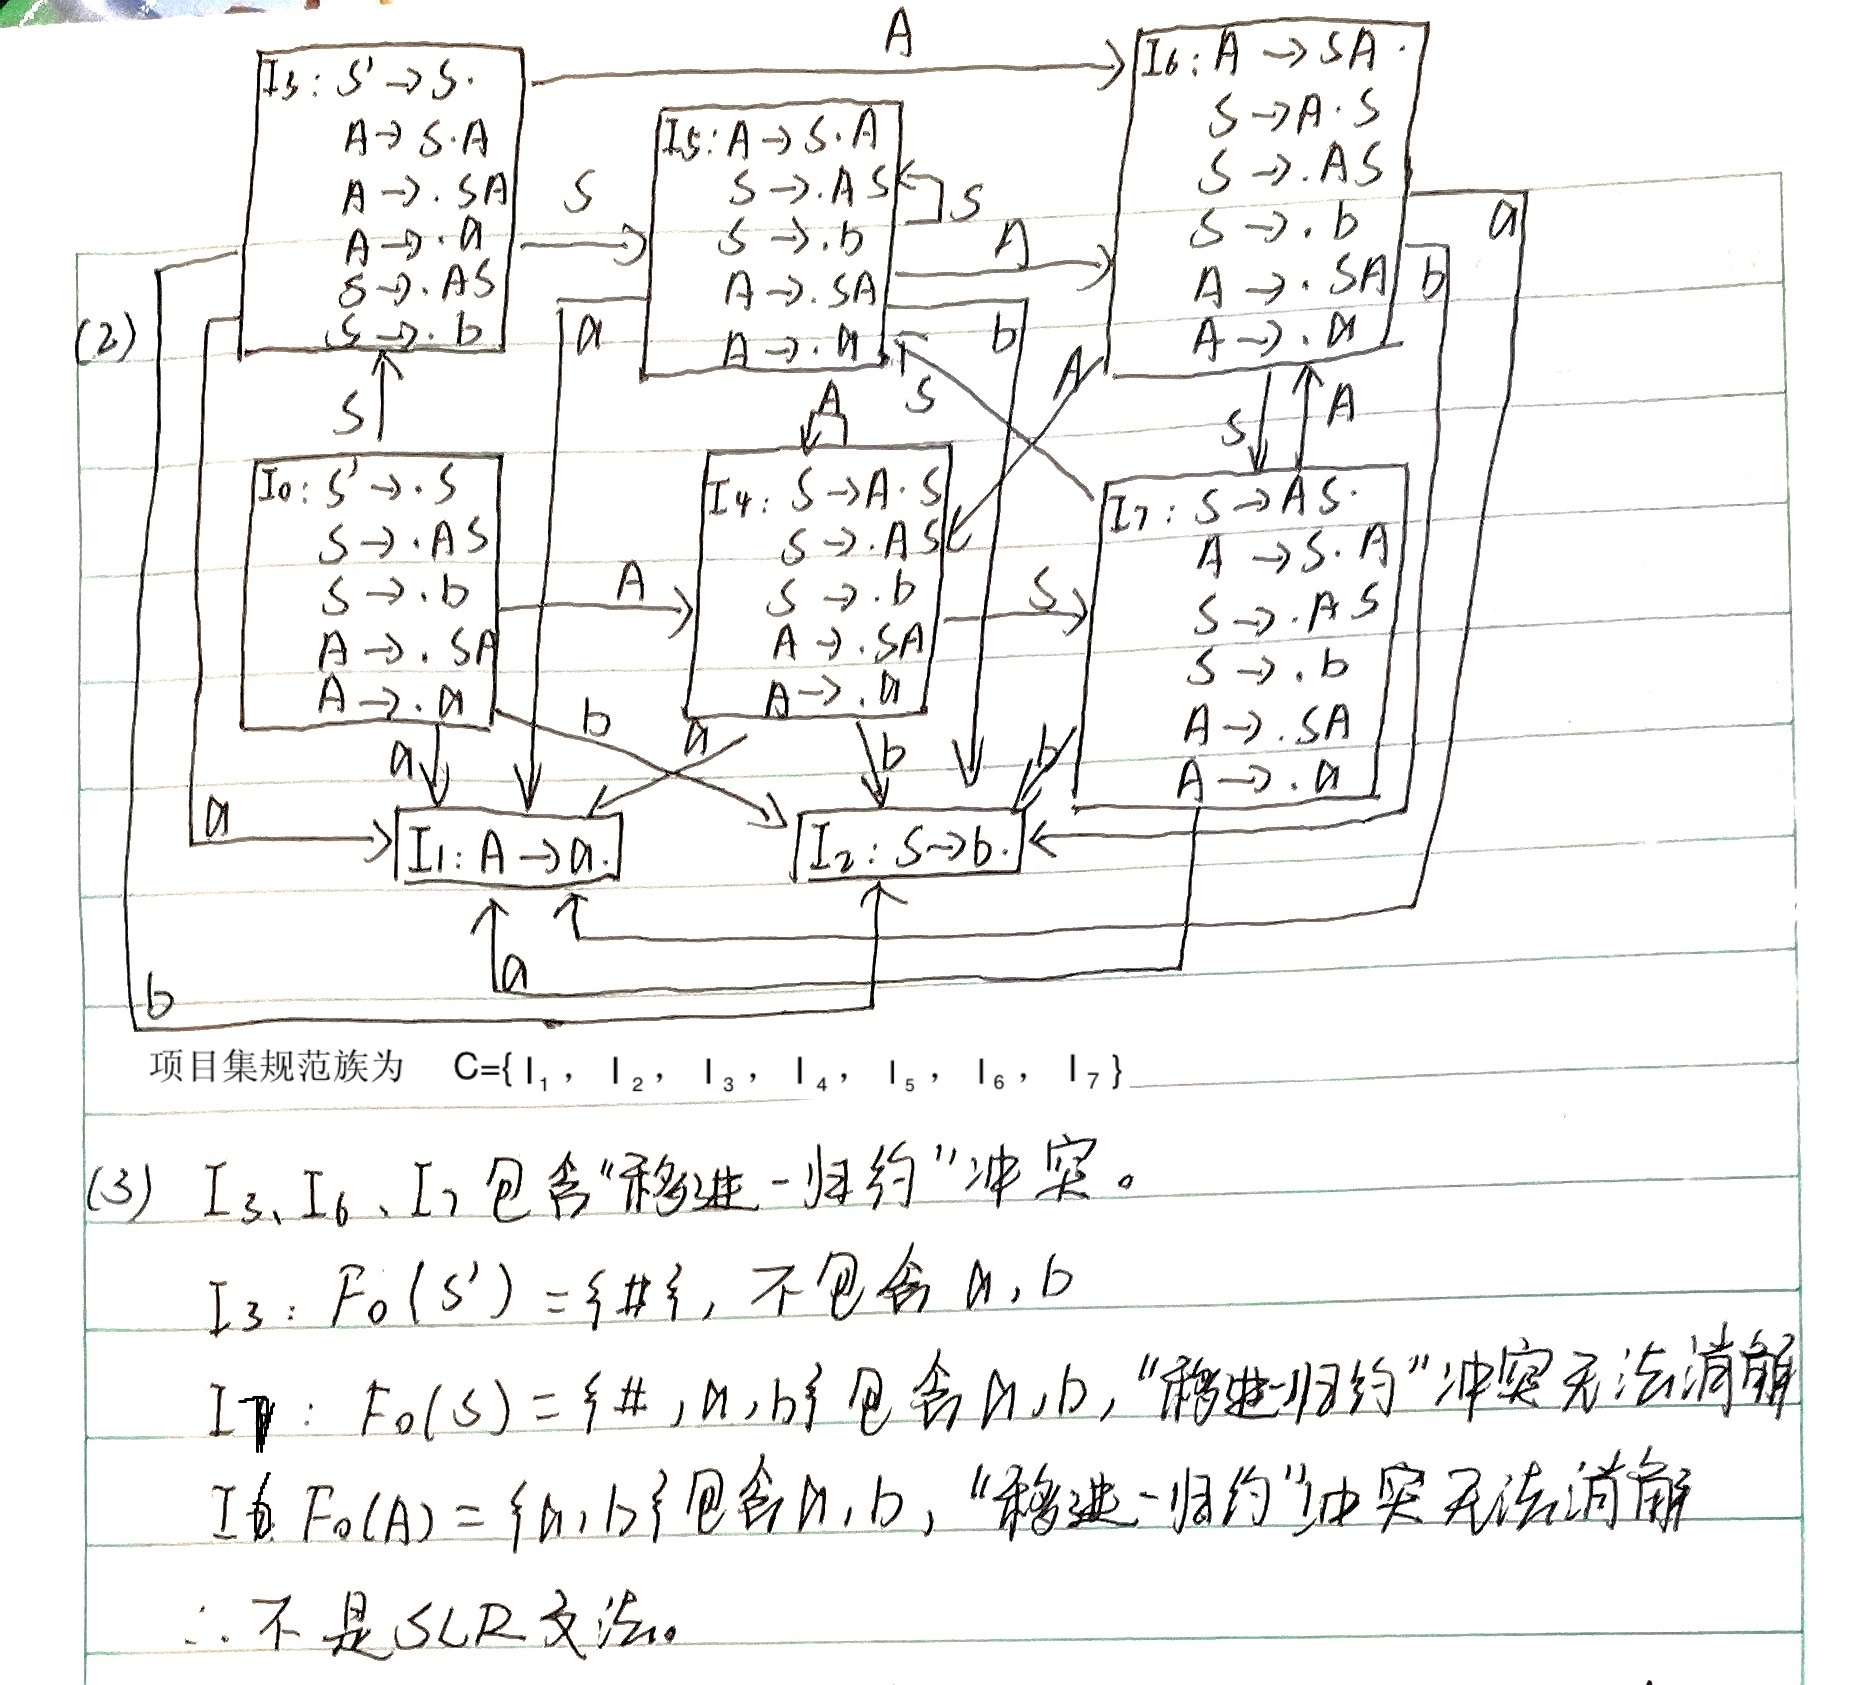 (2)
I3: S' → S.
A → S.A
A → .SA
A → .a
S → .AS
S → .b
I5: A → S.A
S → .AS
S → .b
A → .SA
A → .a
I6: A → SA.
S → A.S
S → .AS
S → .b
A → .SA
A → .a
I0: S' → .S
S → .AS
S → .b
A → .SA
A → .a
I4: S → A.S
S → .AS
S → .b
A → .SA
A → .a
I7: S → AS.
A → S.A
S → .AS
S → .b
A → .SA
A → .a
I1: A → a.
I2: S → b.
A
S
S
A
a
b
a
b
S
A
S
A
S
A
A
S
b
a
b
b
a
a
a
b
项目集规范族为 C={ I1, I2, I3, I4, I5, I6, I7 }
(3) I3、I6、I7包含“移进-归约”冲突。
I3: Fo(S') = {#}, 不包含 a, b
I7: Fo(S) = {#, a, b} 包含 a, b, “移进-归约”冲突无法消解
I6 Fo(A) = {a, b} 包含 a, b, “移进-归约”冲突无法消解
∴ 不是SLR文法。